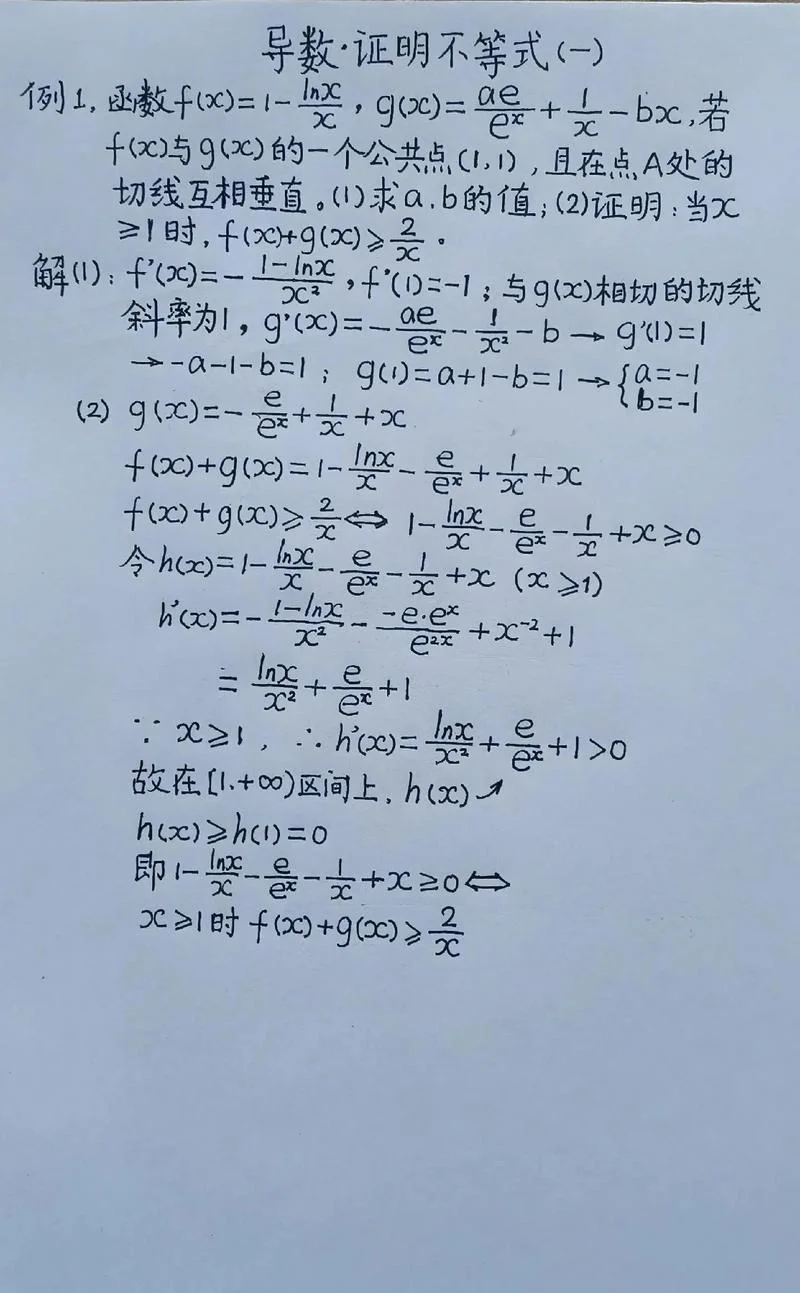 导数·证明不等式(一)
例1,函数f(x)=1-\frac{lnx}{x},g(x)=\frac{ae}{e^x}+\frac{1}{x}-bx,若
f(x)与g(x)的一个公共点(1,1),且在点A处的
切线互相垂直。(1)求a,b的值;(2)证明:当x
≥1时,f(x)+g(x)≥\frac{2}{x}.
解(1):f'(x)=-\frac{1-lnx}{x^2},f'(1)=-1;与g(x)相切的切线
斜率为1,g'(x)=-\frac{ae}{e^x}-\frac{1}{x^2}-b→g'(1)=1
→-a-1-b=1;g(1)=a+1-b=1→{a=-1
b=-1
(2) g(x)=-\frac{e}{e^x}+\frac{1}{x}+x
f(x)+g(x)=1-\frac{lnx}{x}-\frac{e}{e^x}+\frac{1}{x}+x
f(x)+g(x)≥\frac{2}{x}⇔1-\frac{lnx}{x}-\frac{e}{e^x}-\frac{1}{x}+x≥0
令h(x)=1-\frac{lnx}{x}-\frac{e}{e^x}-\frac{1}{x}+x (x≥1)
h'(x)=-\frac{1-lnx}{x^2}-\frac{-e·e^x}{e^{2x}}+x^{-2}+1
=\frac{lnx}{x^2}+\frac{e}{e^x}+1
∵x≥1,∴h'(x)=\frac{lnx}{x^2}+\frac{e}{e^x}+1>0
故在[1.+∞)区间上,h(x)↗
h(x)≥h(1)=0
即1-\frac{lnx}{x}-\frac{e}{e^x}-\frac{1}{x}+x≥0⇔
x≥1时f(x)+g(x)≥\frac{2}{x}